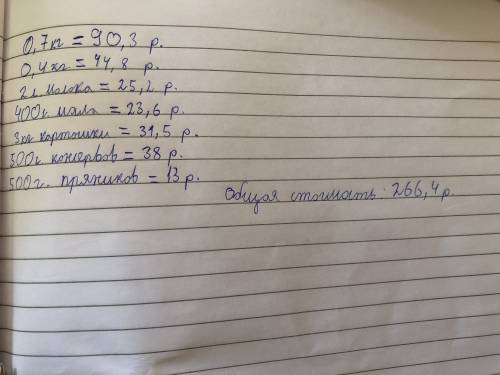 0,7кг = 90,3 р.
0,4кг = 44,8 р.
2л. молока = 25,2 р.
400г. масла = 23,6 р.
3кг картошки = 31,5 р.
300г. консервов = 38 р.
500г. пряников = 13 р.
Общая стоимость: 266,4 р.